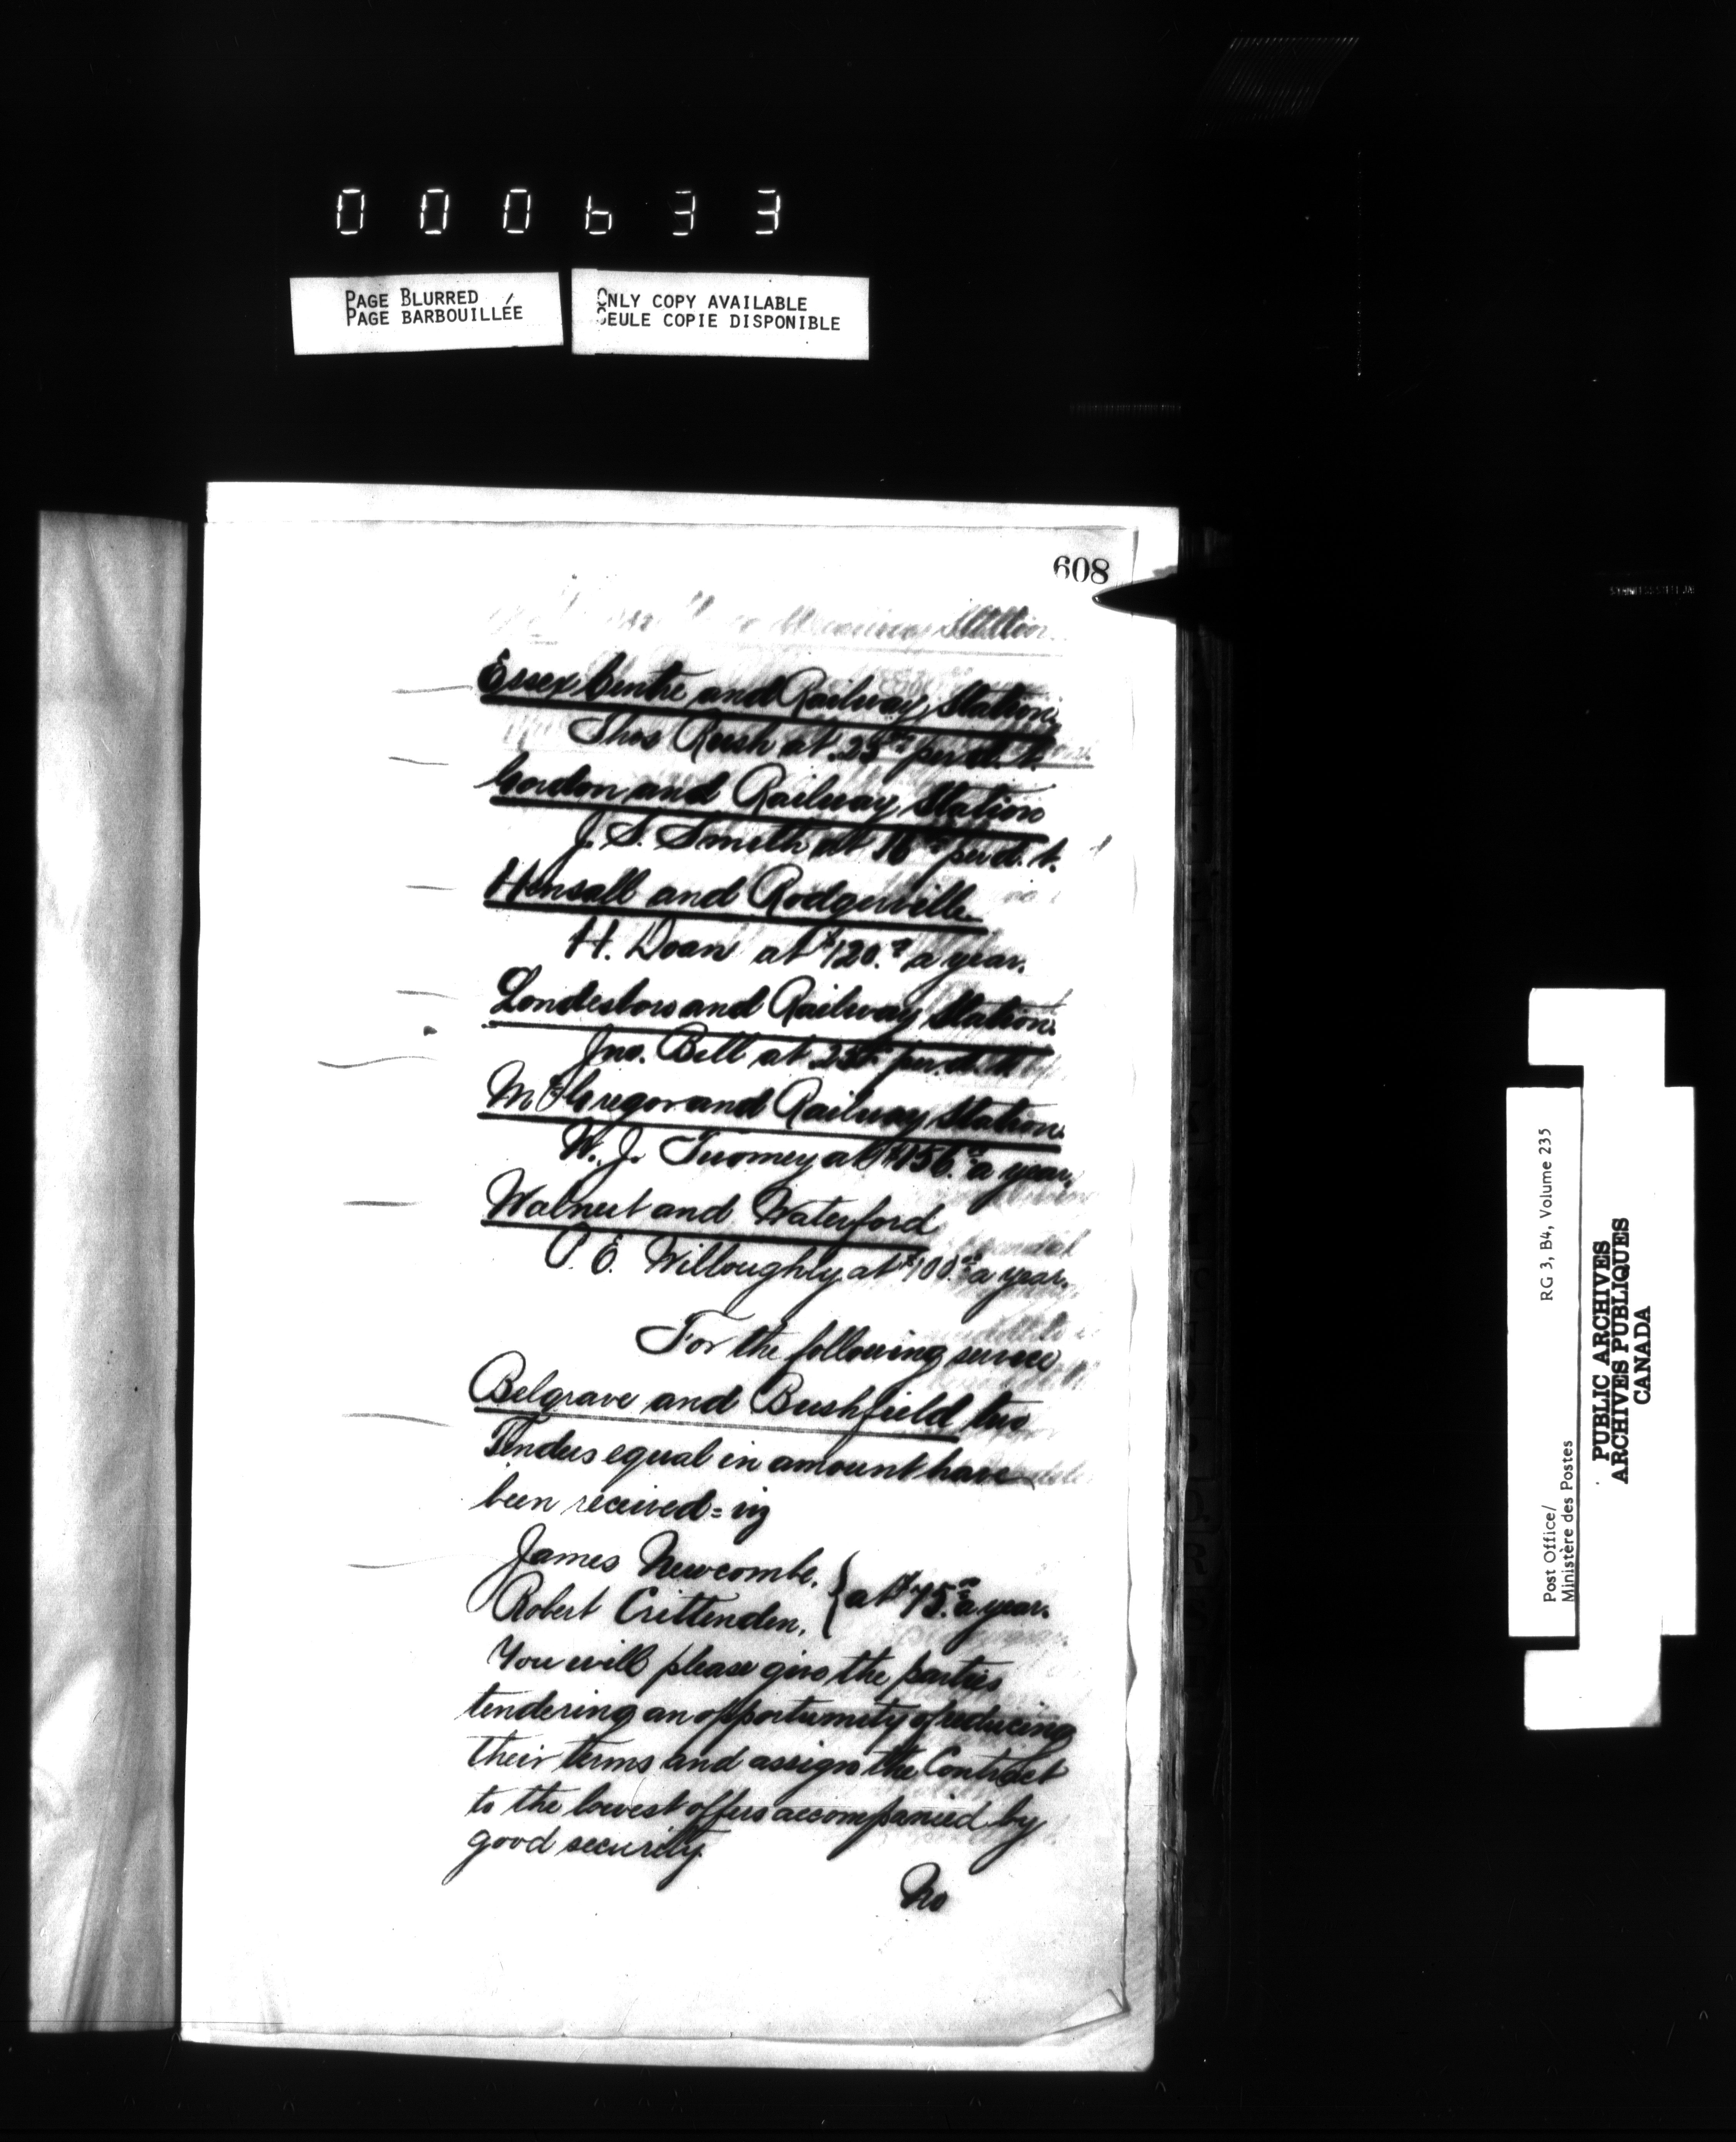 000633
PAGE BLURRED
PAGE BARBOUILLÉE
ONLY COPY AVAILABLE
SEULE COPIE DISPONIBLE
608
Station
Essex Centre and Railway Station
Thos Rush at 25 cts per d. t.
Gordon and Railway Station
J. S. Smith at 16 cts per d. t.
Hensall and Rodgerville
H. Doan at $120.00 a year.
Londesboro and Railway Station
Jno. Bell at 25 cts per. d. t.
McGregor and Railway Station
W. J. Twomey at $156.00 a year.
Walnut and Waterford
P. E. Willoughby at $100.00 a year.
For the following service
Belgrave and Bushfield two
Tenders equal in amount have
been received = viz
James Newcombe.
Robert Crittenden. } at $75.00 a year.
You will please give the parties
tendering an opportunity of reducing
their terms and assign the Contract
to the lowest offers accompanied by
good security.
No
RG 3, B4, Volume 235
Post Office/
Ministère des Postes
PUBLIC ARCHIVES
ARCHIVES PUBLIQUES
CANADA